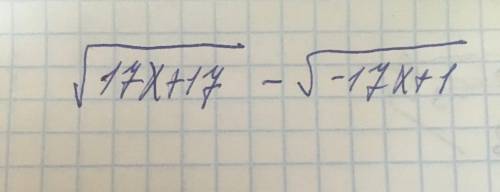 √(17x+17) - √(-17x+1)